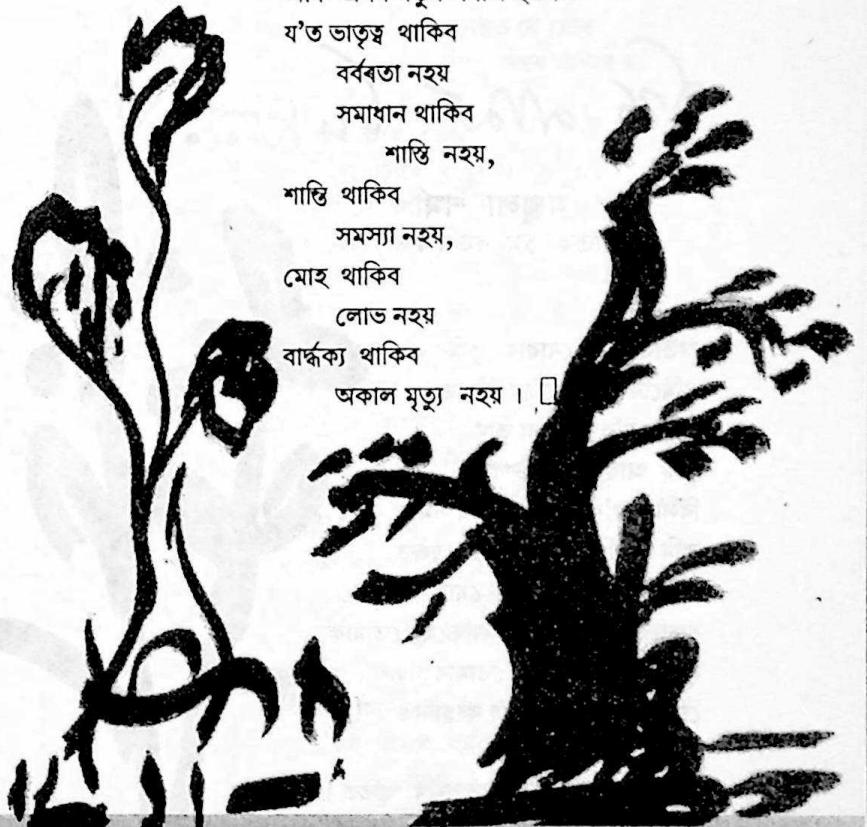 য'ত ভাতৃত্ব থাকিব
বৰ্বৰতা নহয়
সমাধান থাকিব
শাস্তি নহয়,
শান্তি থাকিব
সমস্যা নহয়,
মোহ থাকিব
লোভ নহয়
বাৰ্দ্ধক্য থাকিব
অকাল মৃত্যু নহয় ।